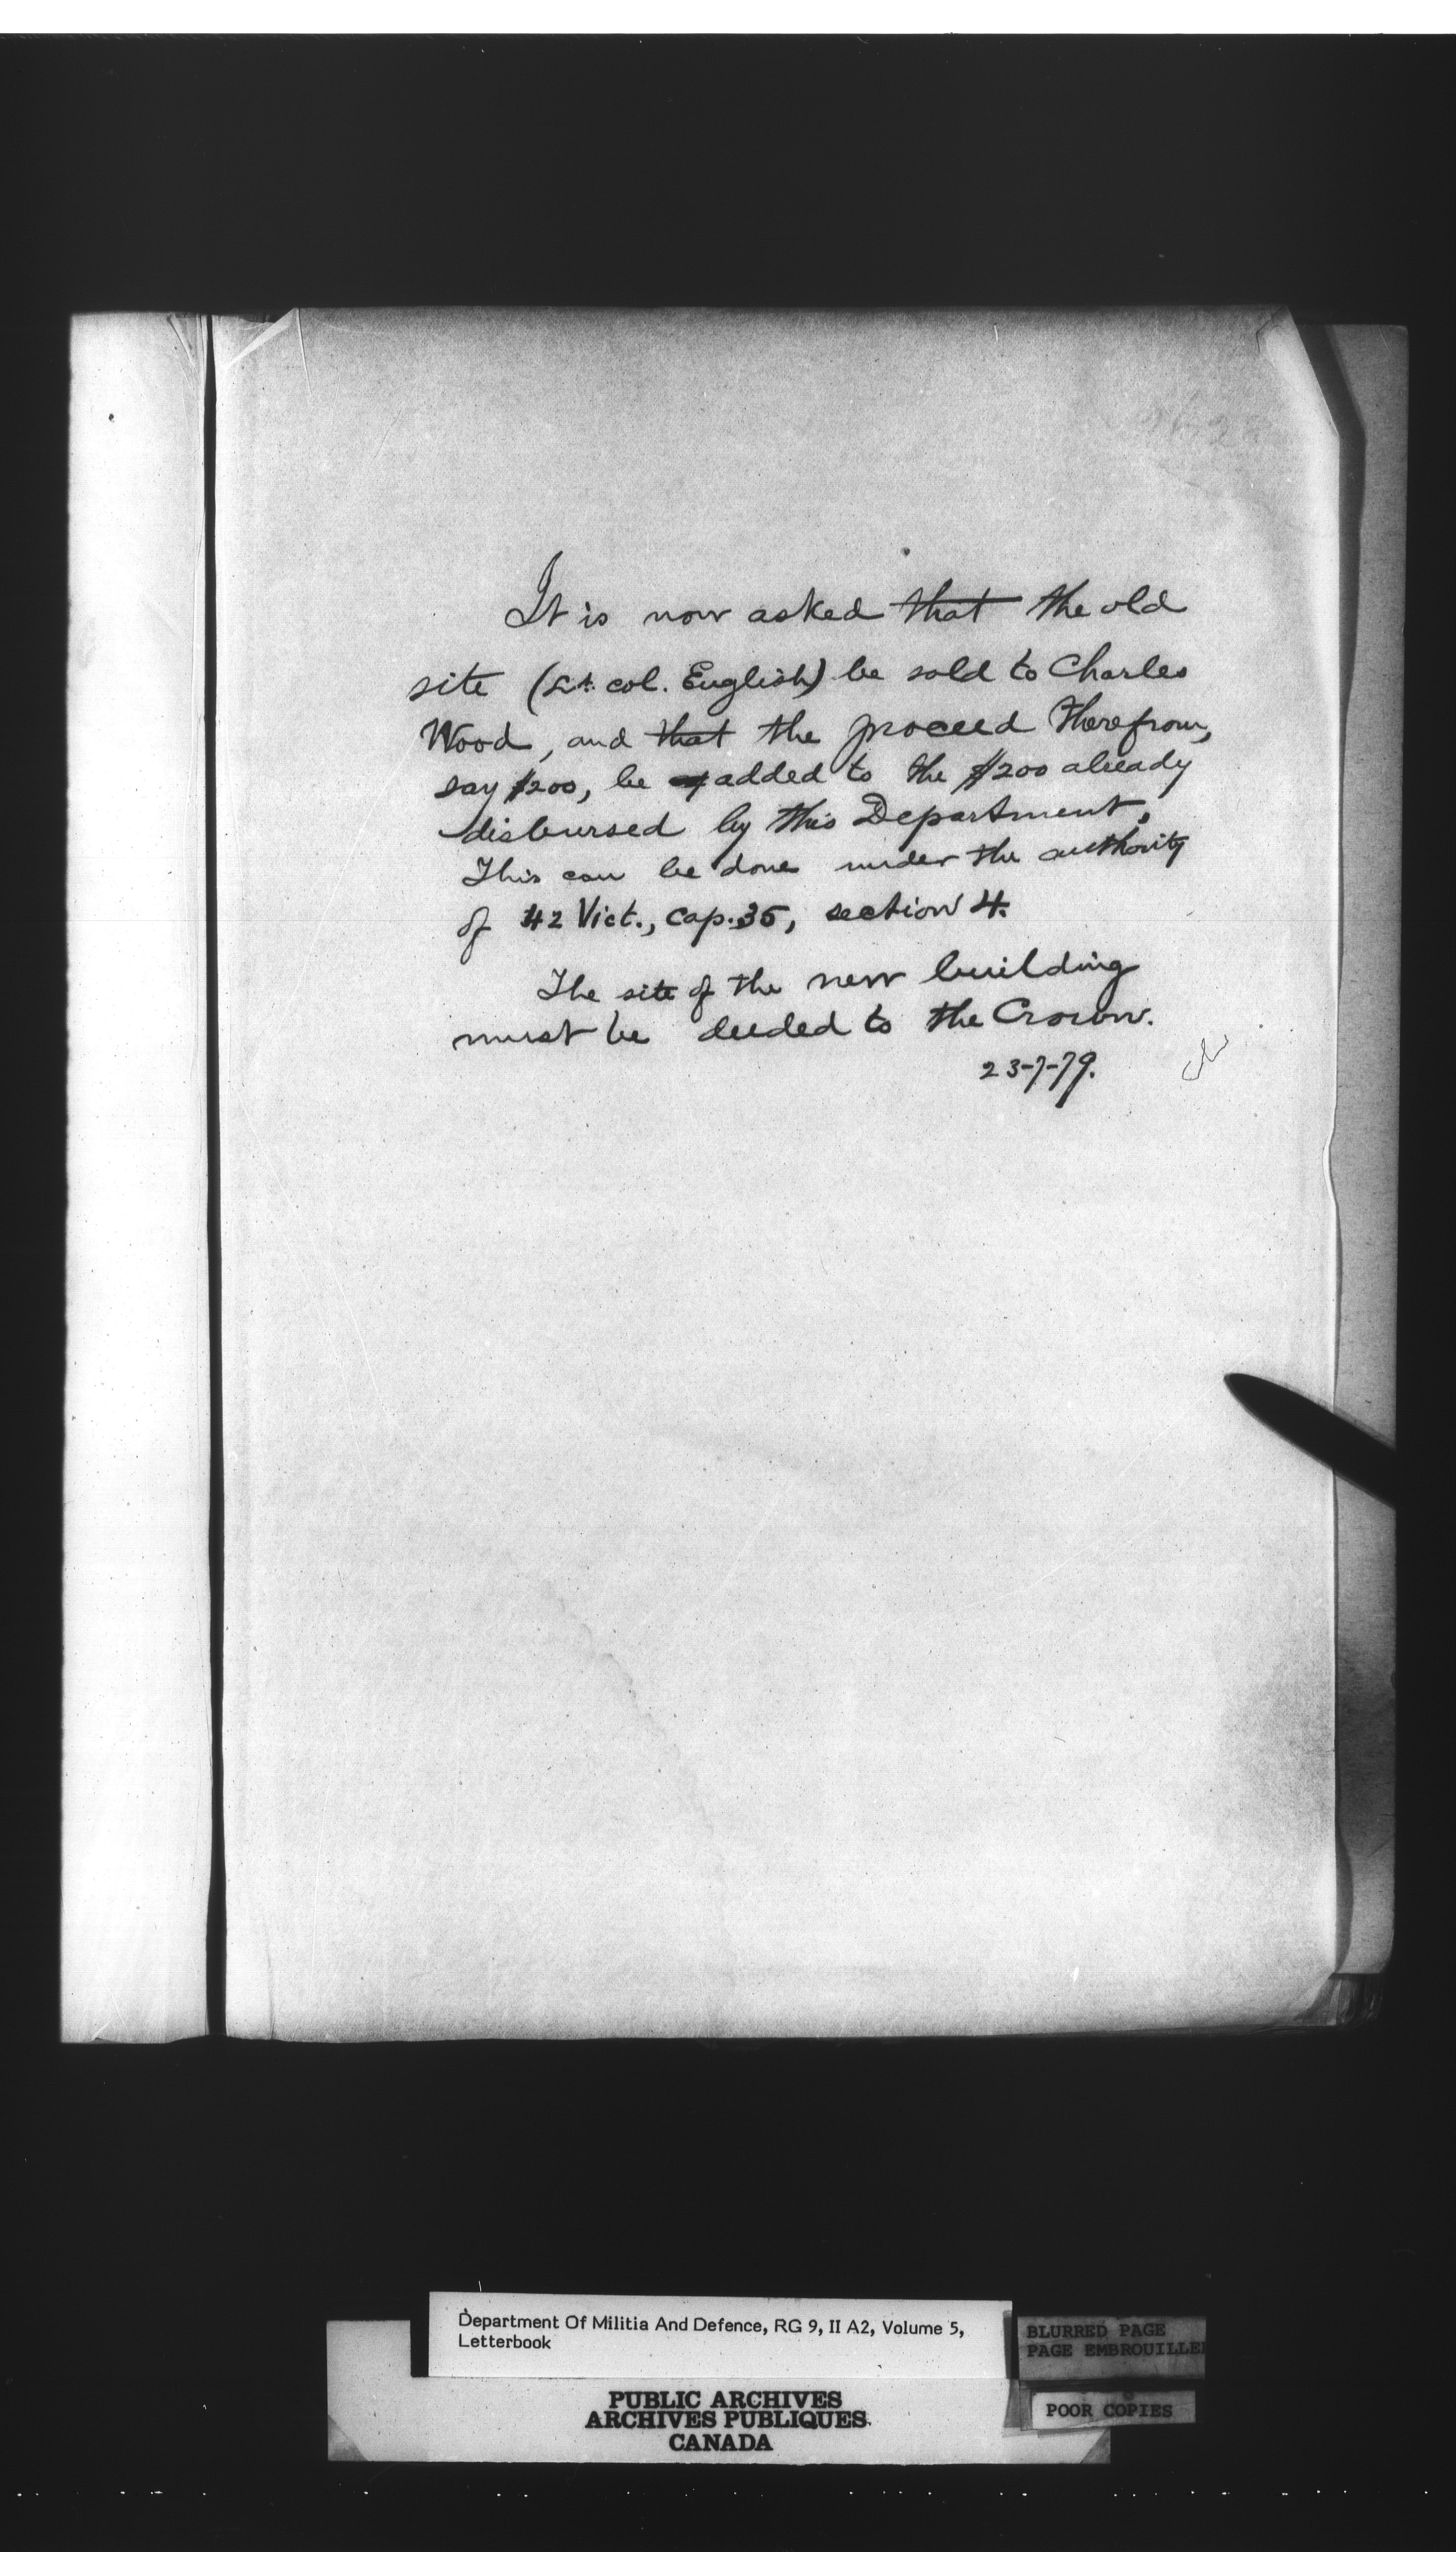 It is now asked that the old
site (Lt. col. English) be sold to Charles
Wood, and that the proceed therefrom,
say $200, be added to the $200 already
disbursed by this Department.
This can be done under the authority
of 42 Vict., cap. 35, section 4.
The site of the new building
must be deeded to the Crown.
23-7-79.
Department Of Militia And Defence, RG 9, II A2, Volume 5,
Letterbook
BLURRED PAGE
PAGE EMBROUILLEE
POOR COPIES
PUBLIC ARCHIVES
ARCHIVES PUBLIQUES
CANADA